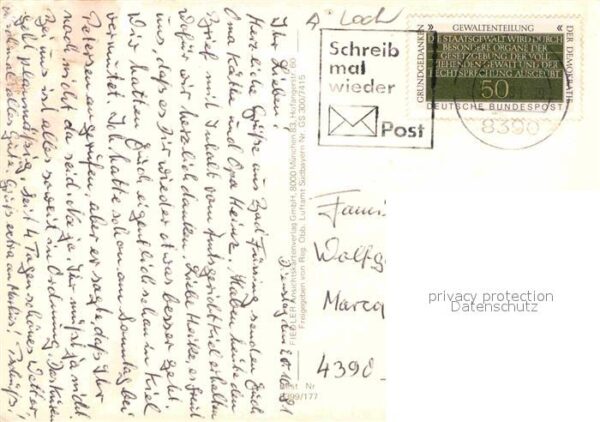 A. Loch
Schreib
mal
wieder
Post
GRUNDGEDANKEN
GEWALTENTEILUNG
DER DEMOKRATIE
»DIE STAATSGEWALT WIRD DURCH
BESONDERE ORGANE DER
GESETZGEBUNG DER VOLL
ZIEHENDEN GEWALT UND DER
RECHTSPRECHUNG AUSGEÜBT«
50
DEUTSCHE BUNDESPOST
8390
d. 20.10.81
Ihr Lieben!
Herzliche Grüße aus Bad Füssing senden Euch
Oma Käthe und Opa Heinz. Haben heute den
Brief mit Inhalt vom Amtsgericht Kiel erhalten
Wofür wir herzlich danken. Liebe Heike es freut
uns, daß es Dir wieder etwas besser geht.
Wir hatten Euch eigentlich schon in Kiel
vermutet. Ich hatte schon am Sonntag bei
Petersen angerufen, aber er sagte, daß Ihr
noch nicht da seid. Na ja. Ihr müßt ja nicht.
Bei uns ist alles soweit in Ordnung. Das Kuren
geht planmäßig. Seit 4 Tagen schönes Wetter
alles Gute. Gruß extra an
FIEDLER Ansichtskartenverlag GmbH, 8000 München 83, Hofangerstr. 60
Freigegeben von Reg. Obb. Luftamt Südbayern Nr. GS 300/7415
Best Nr
8399/177
Fam.
Wolfg
Marcq
4390
privacy protection
Datenschutz